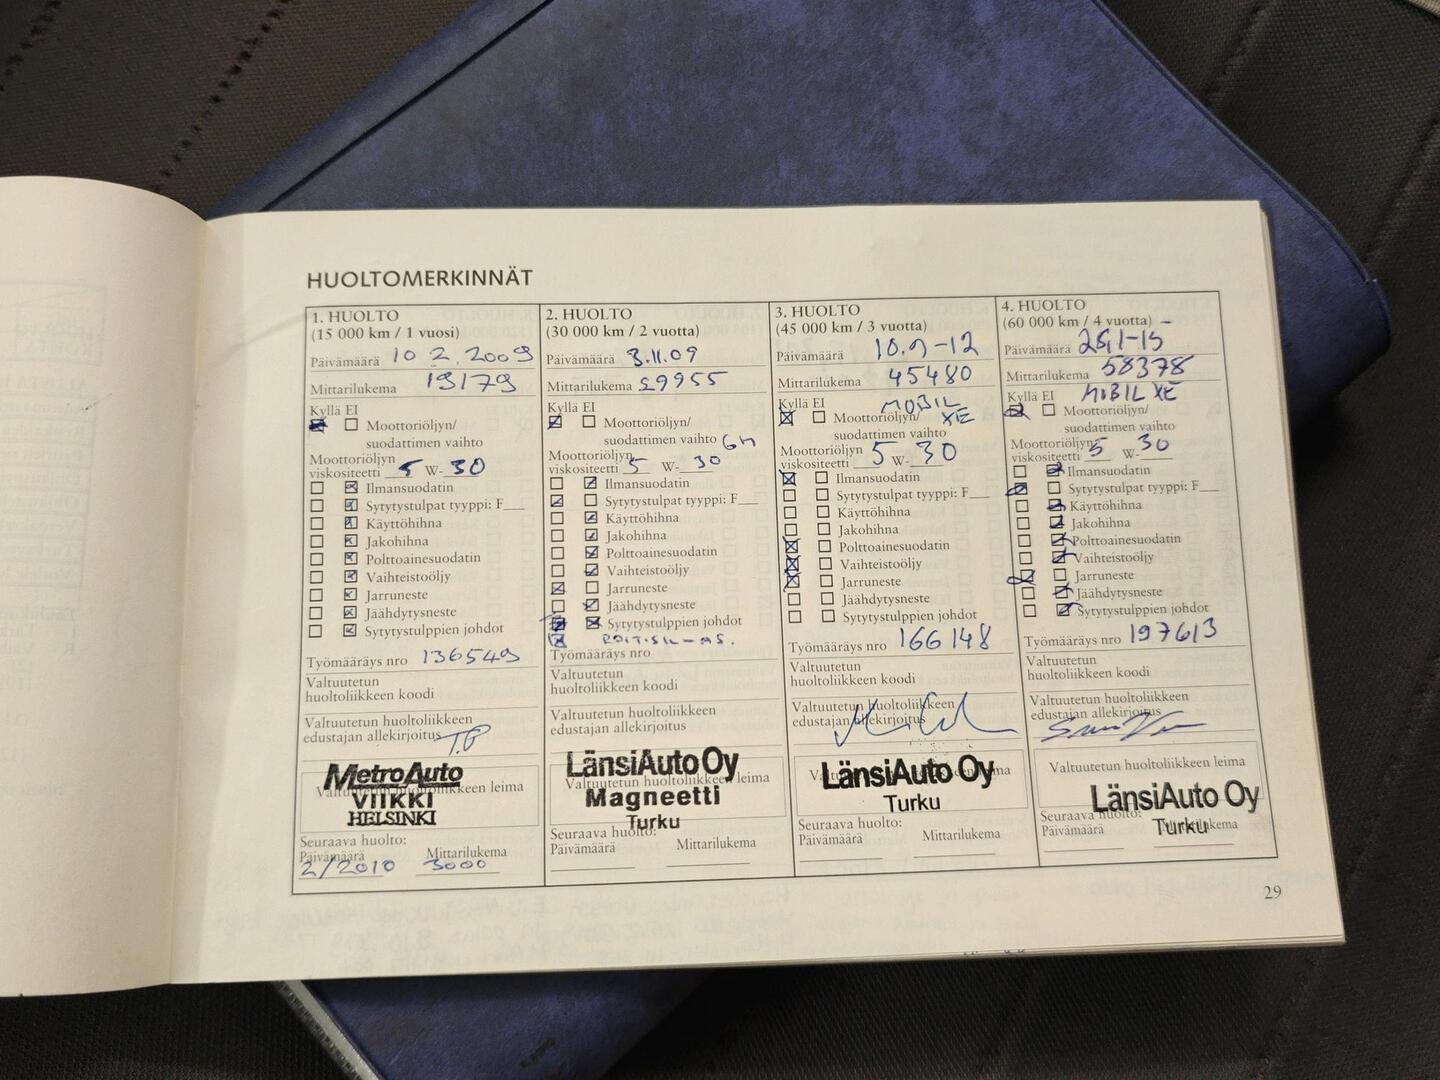 HUOLTOMERKINNÄT
1. HUOLTO
(15 000 km / 1 vuosi)
Päivämäärä 10 2.2009
Mittarilukema 19179
Kyllä EI
Moottoriöljyn/
suodattimen vaihto
Moottoriöljyn
viskositeetti 5 W-30
Ilmansuodatin
Sytytystulpat tyyppi: F
Käyttöhihna
Jakohihna
Polttoainesuodatin
Vaihteistoöljy
Jarruneste
Jäähdytysneste
Sytytystulppien johdot
Työmääräys nro 136549
Valtuutetun
huoltoliikkeen koodi
Valtuutetun huoltoliikkeen
edustajan allekirjoitus
Valtuutetun huoltoliikkeen leima
MetroAuto
VIIKKI
HELSINKI
Seuraava huolto:
Päivämäärä Mittarilukema
2/2010 3000
2. HUOLTO
(30 000 km / 2 vuotta)
Päivämäärä 3.11.09
Mittarilukema 29955
Kyllä EI
Moottoriöljyn/
suodattimen vaihto
Moottoriöljyn
viskositeetti 5 W-30
Ilmansuodatin
Sytytystulpat tyyppi: F
Käyttöhihna
Jakohihna
Polttoainesuodatin
Vaihteistoöljy
Jarruneste
Jäähdytysneste
Sytytystulppien johdot
Työmääräys nro
Valtuutetun
huoltoliikkeen koodi
Valtuutetun huoltoliikkeen
edustajan allekirjoitus
LänsiAuto Oy
Valtuutetun huoltoliikkeen leima
Magneetti
Turku
Seuraava huolto:
Päivämäärä Mittarilukema
3. HUOLTO
(45 000 km / 3 vuotta)
Päivämäärä 10.9-12
Mittarilukema 45480
Kyllä EI MOBIL
Moottoriöljyn/ XE
suodattimen vaihto
Moottoriöljyn
viskositeetti 5 W-30
Ilmansuodatin
Sytytystulpat tyyppi: F
Käyttöhihna
Jakohihna
Polttoainesuodatin
Vaihteistoöljy
Jarruneste
Jäähdytysneste
Sytytystulppien johdot
Työmääräys nro 166148
Valtuutetun
huoltoliikkeen koodi
Valtuutetun huoltoliikkeen
edustajan allekirjoitus
LänsiAuto Oy
Valtuutetun huoltoliikkeen leima
Turku
Seuraava huolto:
Päivämäärä Mittarilukema
4. HUOLTO
(60 000 km / 4 vuotta)
Päivämäärä
Mittarilukema 58378
Kyllä EI MOBIL XE
Moottoriöljyn/
suodattimen vaihto
Moottoriöljyn
viskositeetti 5 W-30
Ilmansuodatin
Sytytystulpat tyyppi: F
Käyttöhihna
Jakohihna
Polttoainesuodatin
Vaihteistoöljy
Jarruneste
Jäähdytysneste
Sytytystulppien johdot
Työmääräys nro 197613
Valtuutetun
huoltoliikkeen koodi
Valtuutetun huoltoliikkeen
edustajan allekirjoitus
Valtuutetun huoltoliikkeen leima
LänsiAuto Oy
Turku
Seuraava huolto:
Päivämäärä Mittarilukema
29